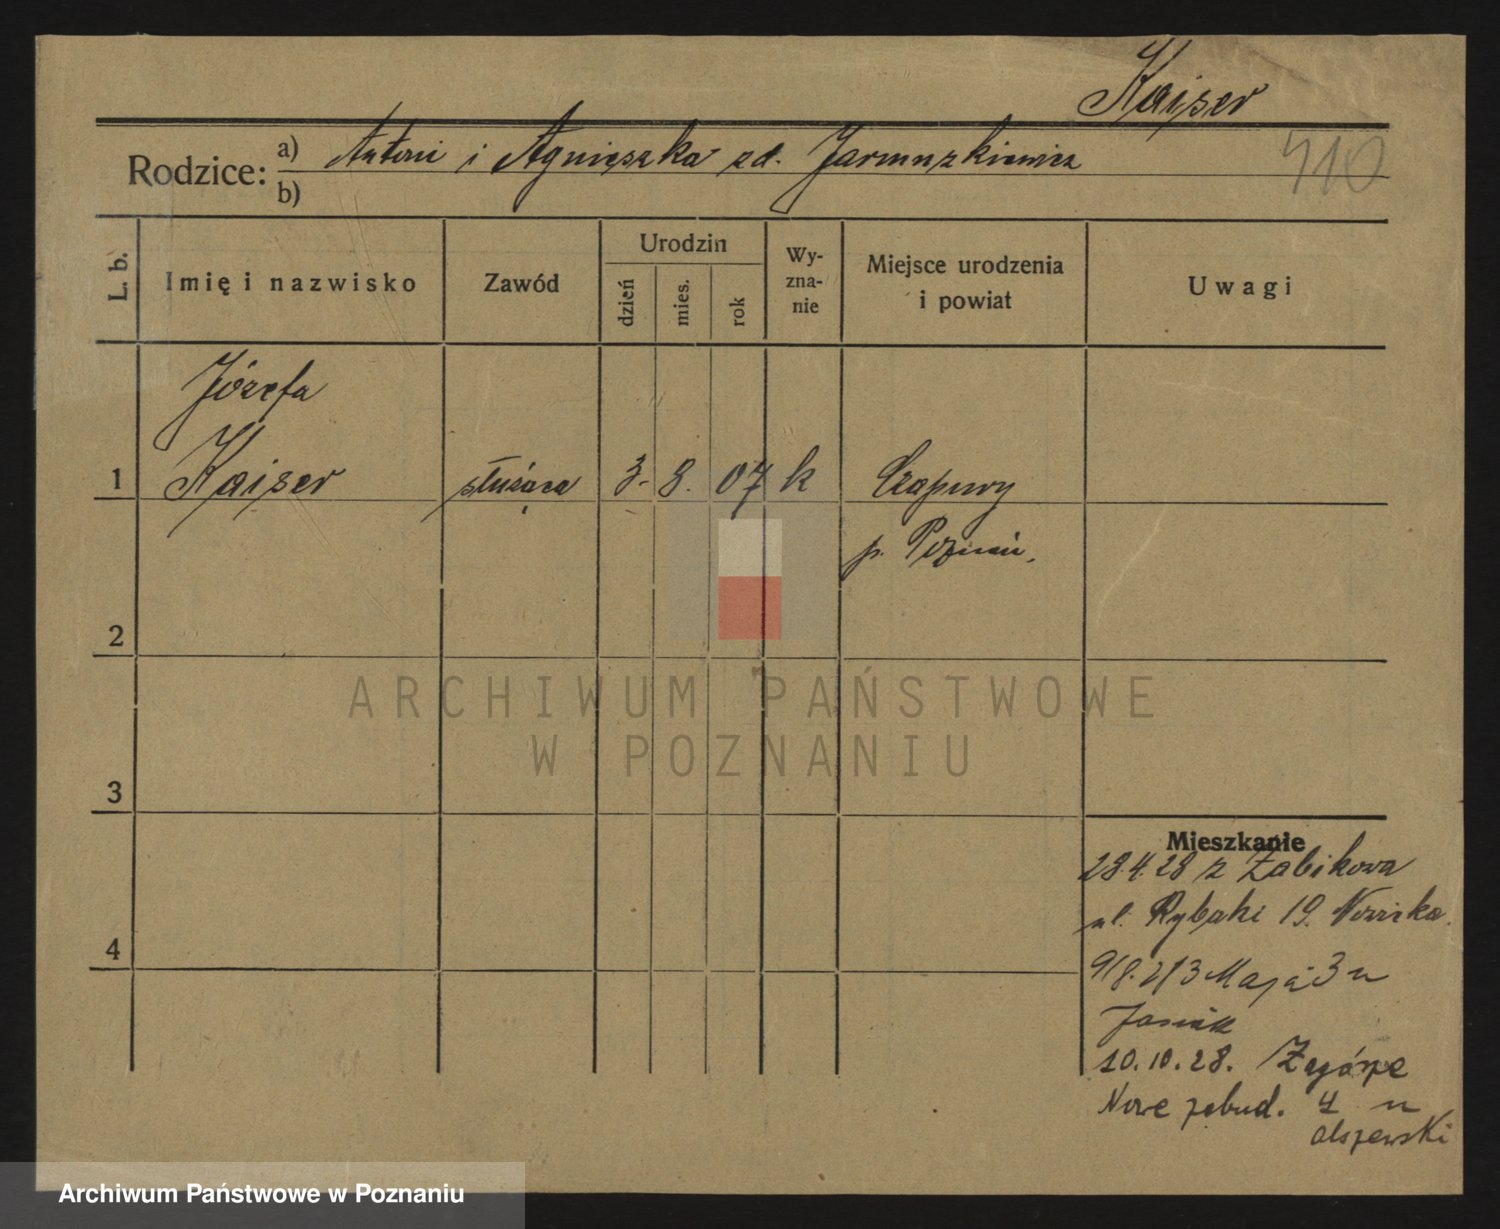 Kaiser
Rodzice: a) Antoni i Agnieszka zd. Jarmuszkiewicz
b)
410
L. b.
Imię i nazwisko
Zawód
Urodzin
dzień
mies.
rok
Wy-
zna-
nie
Miejsce urodzenia
i powiat
Uwagi
Józefa
1 Kaiser służąca 3. 8. 07 k Czapury
p. Poznań.
2
ARCHIWUM PAŃSTWOWE
W POZNANIU
3
Mieszkanie
28.4.28 z Żabikowa
ul. Rybaki 19. Nowicka.
4
9/8. 3 Maja 3 u
10.10.28. Zagórze
Nowe zabud. 4 u
Olszewski
Archiwum Państwowe w Poznaniu